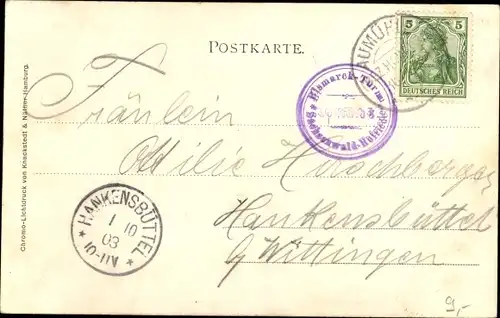 POSTKARTE.
5 5
DEUTSCHES REICH
AUMÜH
Bismarck-Turm
Sachsenwald-
Fräulein
Ottilie Hirschberger
Hankensbüttel
b/ Wittingen
HANKENSBÜTTEL
1 10
03
Chromo-Lichtdruck von Knackstedt & Näther-Hamburg.
9,-